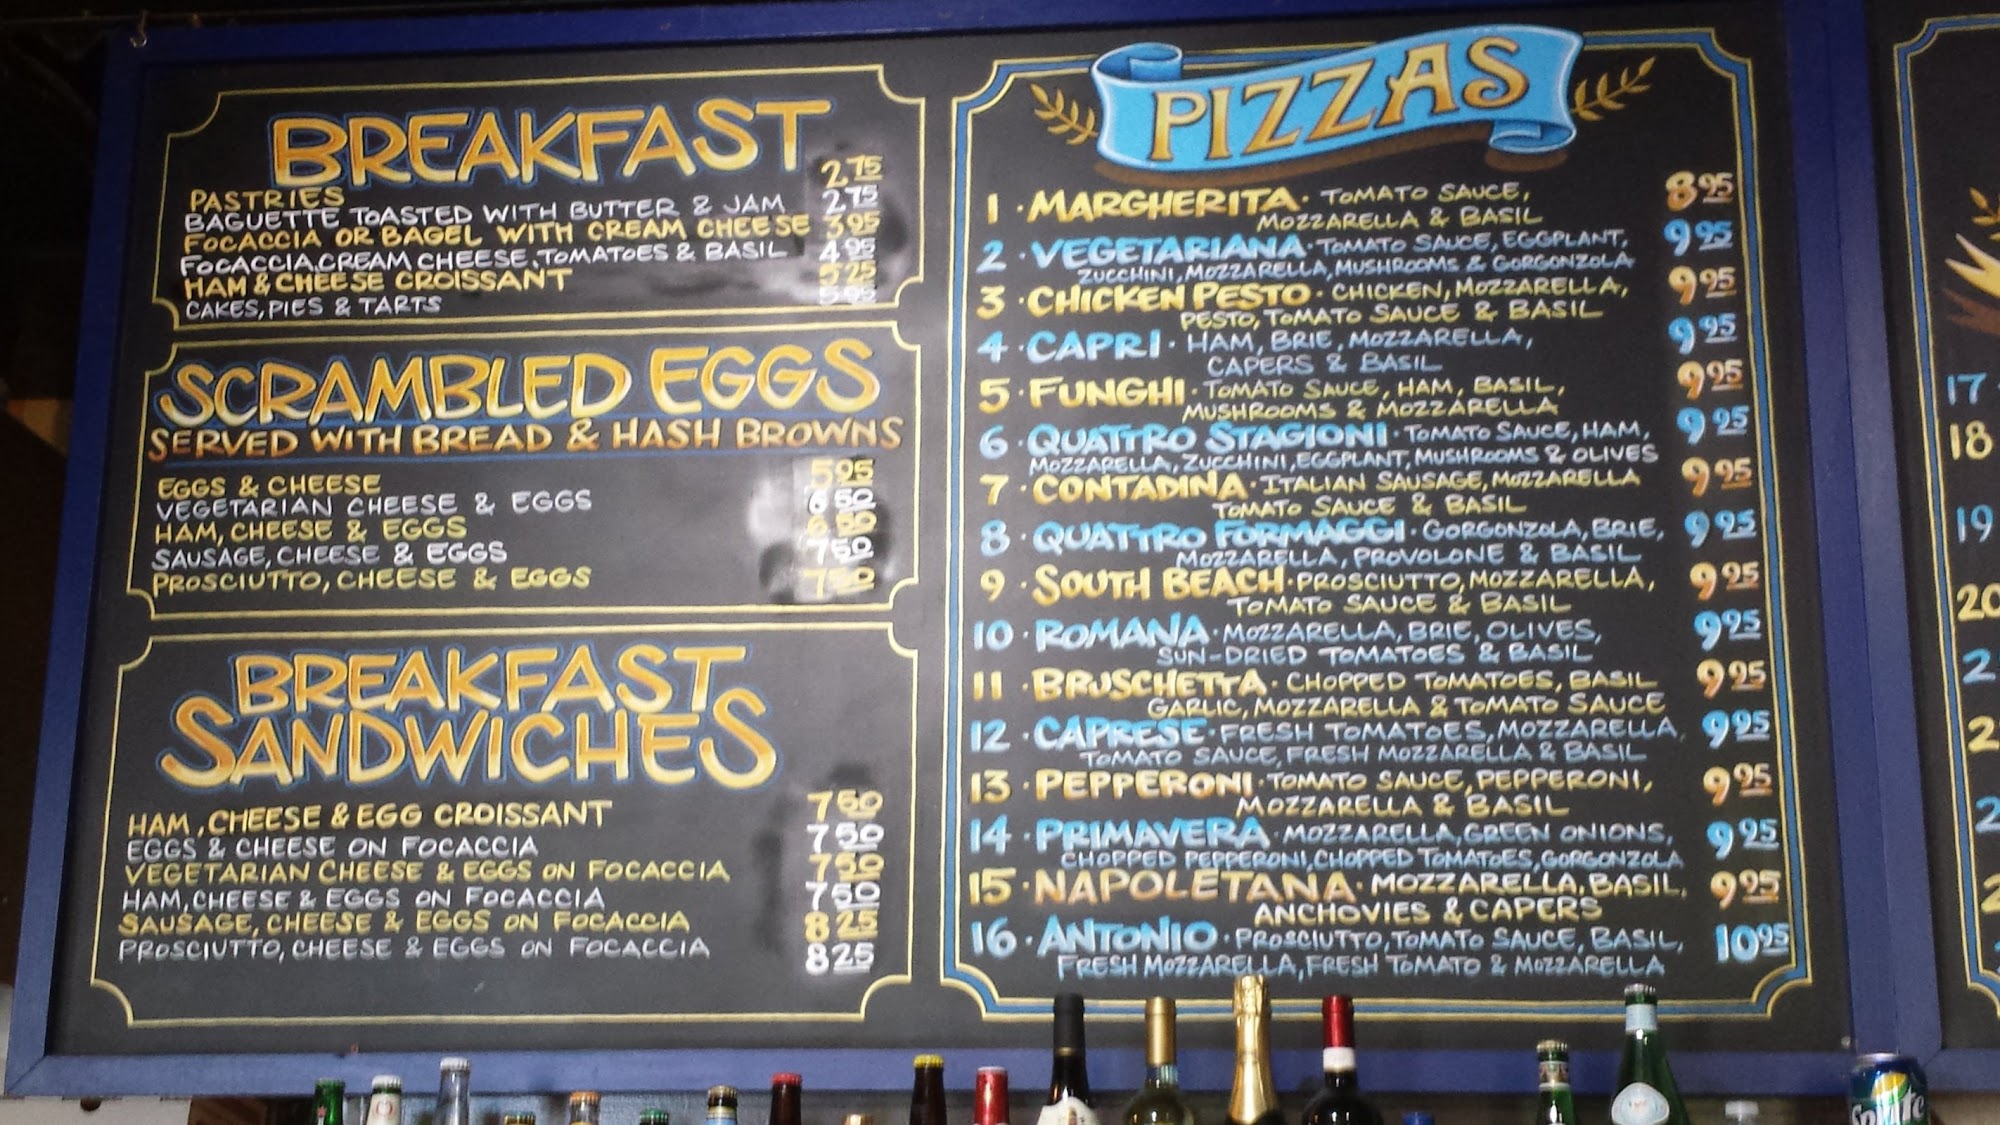 BREAKFAST
PASTRIES 2.75
BAGUETTE TOASTED WITH BUTTER & JAM 2.75
FOCACCIA OR BAGEL WITH CREAM CHEESE 3.95
FOCACCIA, CREAM CHEESE, TOMATOES & BASIL 4.95
HAM & CHEESE CROISSANT 5.25
CAKES, PIES & TARTS 5.95
SCRAMBLED EGGS
SERVED WITH BREAD & HASH BROWNS
EGGS & CHEESE 5.95
VEGETARIAN CHEESE & EGGS 6.50
HAM, CHEESE & EGGS
SAUSAGE, CHEESE & EGGS 7.50
PROSCIUTTO, CHEESE & EGGS 7.50
BREAKFAST
SANDWICHES
HAM, CHEESE & EGG CROISSANT 7.50
EGGS & CHEESE ON FOCACCIA 7.50
VEGETARIAN CHEESE & EGGS ON FOCACCIA 7.50
HAM, CHEESE & EGGS ON FOCACCIA 7.50
SAUSAGE, CHEESE & EGGS ON FOCACCIA 8.25
PROSCIUTTO, CHEESE & EGGS ON FOCACCIA 8.25
PIZZAS
1 · MARGHERITA · TOMATO SAUCE, 8.95
MOZZARELLA & BASIL
2 · VEGETARIANA · TOMATO SAUCE, EGGPLANT, 9.95
ZUCCHINI, MOZZARELLA, MUSHROOMS & GORGONZOLA
3 · CHICKEN PESTO · CHICKEN, MOZZARELLA, 9.95
PESTO, TOMATO SAUCE & BASIL
4 · CAPRI · HAM, BRIE, MOZZARELLA, 9.95
CAPERS & BASIL
5 · FUNGHI · TOMATO SAUCE, HAM, BASIL, 9.95
MUSHROOMS & MOZZARELLA
6 · QUATTRO STAGIONI · TOMATO SAUCE, HAM, 9.95
MOZZARELLA, ZUCCHINI, EGGPLANT, MUSHROOMS & OLIVES
7 · CONTADINA · ITALIAN SAUSAGE, MOZZARELLA 9.95
TOMATO SAUCE & BASIL
8 · QUATTRO FORMAGGI · GORGONZOLA, BRIE, 9.95
MOZZARELLA, PROVOLONE & BASIL
9 · SOUTH BEACH · PROSCIUTTO, MOZZARELLA, 9.95
TOMATO SAUCE & BASIL
10 · ROMANA · MOZZARELLA, BRIE, OLIVES, 9.95
SUN-DRIED TOMATOES & BASIL
11 · BRUSCHETTA · CHOPPED TOMATOES, BASIL 9.95
GARLIC, MOZZARELLA & TOMATO SAUCE
12 · CAPRESE · FRESH TOMATOES, MOZZARELLA, 9.95
TOMATO SAUCE, FRESH MOZZARELLA & BASIL
13 · PEPPERONI · TOMATO SAUCE, PEPPERONI, 9.95
MOZZARELLA & BASIL
14 · PRIMAVERA · MOZZARELLA, GREEN ONIONS, 9.95
CHOPPED PEPPERONI, CHOPPED TOMATOES, GORGONZOLA
15 · NAPOLETANA · MOZZARELLA, BASIL, 9.95
ANCHOVIES & CAPERS
16 · ANTONIO · PROSCIUTTO, TOMATO SAUCE, BASIL, 10.95
FRESH MOZZARELLA, FRESH TOMATO & MOZZARELLA
17
18
19
20
Sprite